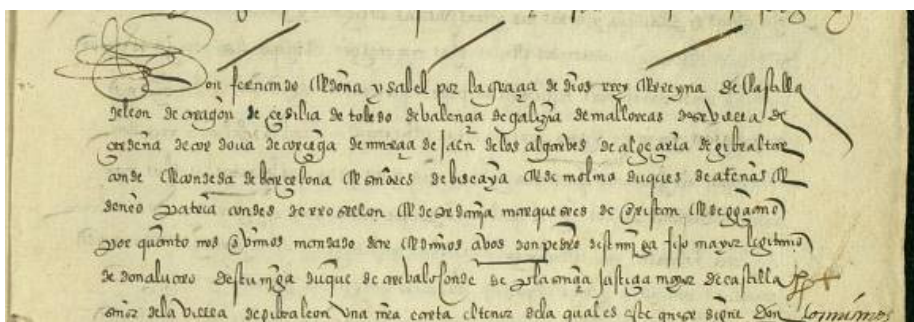 Don fernando e doña ysabel por la graçia de dios rrey e rreyna de castilla
de leon de aragon de çeçilia de toledo de balençia de galizia de mallorcas de sevilla de
çerdeña de cordova de corçega de murçia de jaen de los algarbes de algezira de gibraltar
conde e condesa de barcelona e señores de bizcaya e de molina duques de atenas e
de neopatria condes de rrosellon e de çerdania marqueses de oristan e de goçiano
por quanto nos ovimos mandado dar e dimos a vos don pedro destuñiga fijo mayor legitimo
de don alvaro destuñiga duque de arebalo conde de plasençia justiçia mayor de castilla
señor de la villa de gibraleon una nra carta el tenor de la qual es este que se sigue Don